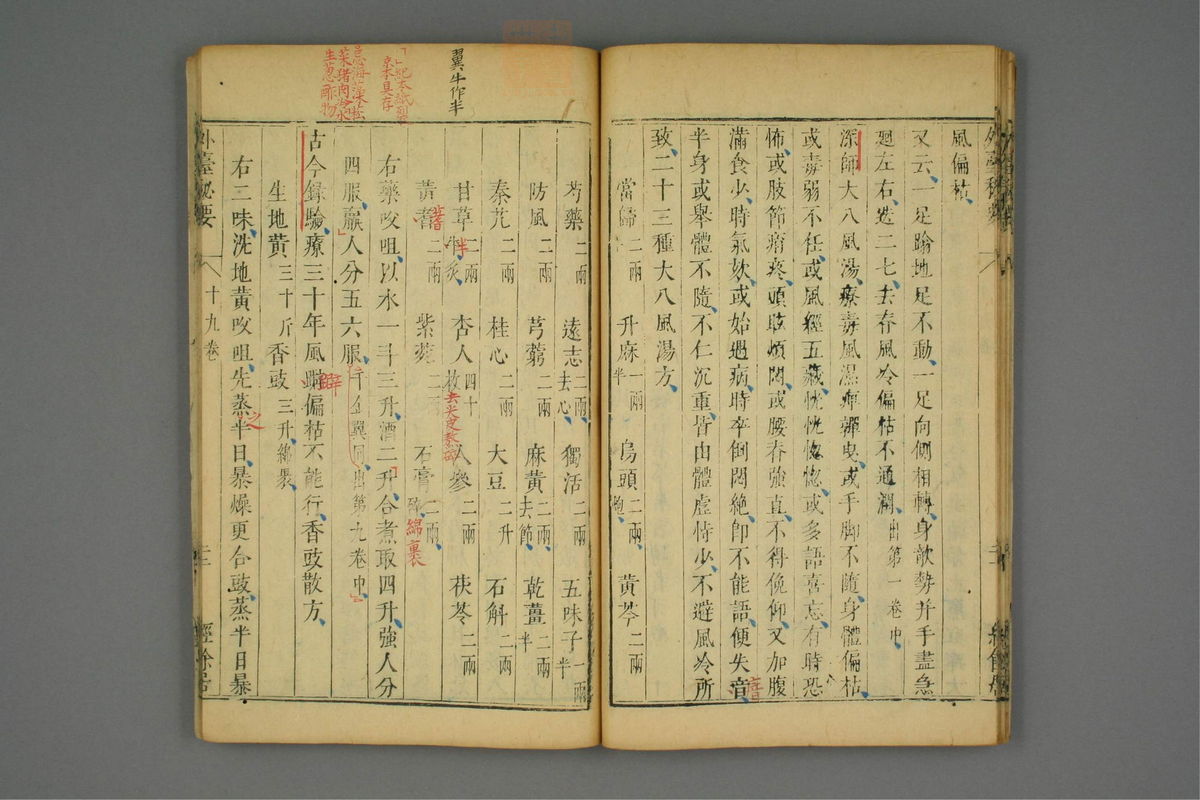 風偏枯
又云一足踰地足不動一足向側相轉身欹勢并手盡急
廻左右迭二七去脊風冷偏枯不通潤出第一卷中
深師大八風湯療毒風濕痺嚲曳或手脚不隨身體偏枯
或毒弱不任或風經五藏恍恍惚惚或多語喜忘有時恐
怖或肢節痟疼頭眩煩悶或腰脊強直不得俛仰又加腹
滿食少時氣欬或始遇病時卒倒悶絶卽不能語便失音
瘖
半身或舉體不隨不仁沉重皆由體虛恃少不避風冷所
致二十三種大八風湯方
當歸二兩 升麻一兩半 烏頭二兩炮 黃芩二兩
芍藥二兩 遠志二兩去心 獨活二兩 五味子一兩半
防風二兩 芎藭二兩 麻黃二兩去節 乾薑二兩半
秦艽二兩 桂心二兩 大豆二升 石斛二兩
甘草二兩炙 杏人四十枚 人參二兩 茯苓二兩
半
去尖皮
黃耆二兩 紫菀二兩 石膏二兩碎
綿裹
右藥㕮咀以水一斗三升酒二升合煮取四升強人分
四服羸人分五六服千金翼同出第九卷中
古今錄驗療三十年風躃偏枯不能行香豉散方
生地黃三十斤香豉三升綿裹
右二味洗地黃㕮咀先蒸半日暴燥更合豉蒸半日暴
之
外臺祕要
十九卷
經餘居
翼牛作半
忌海藻菘
菜猪肉冷水
生葱酢物